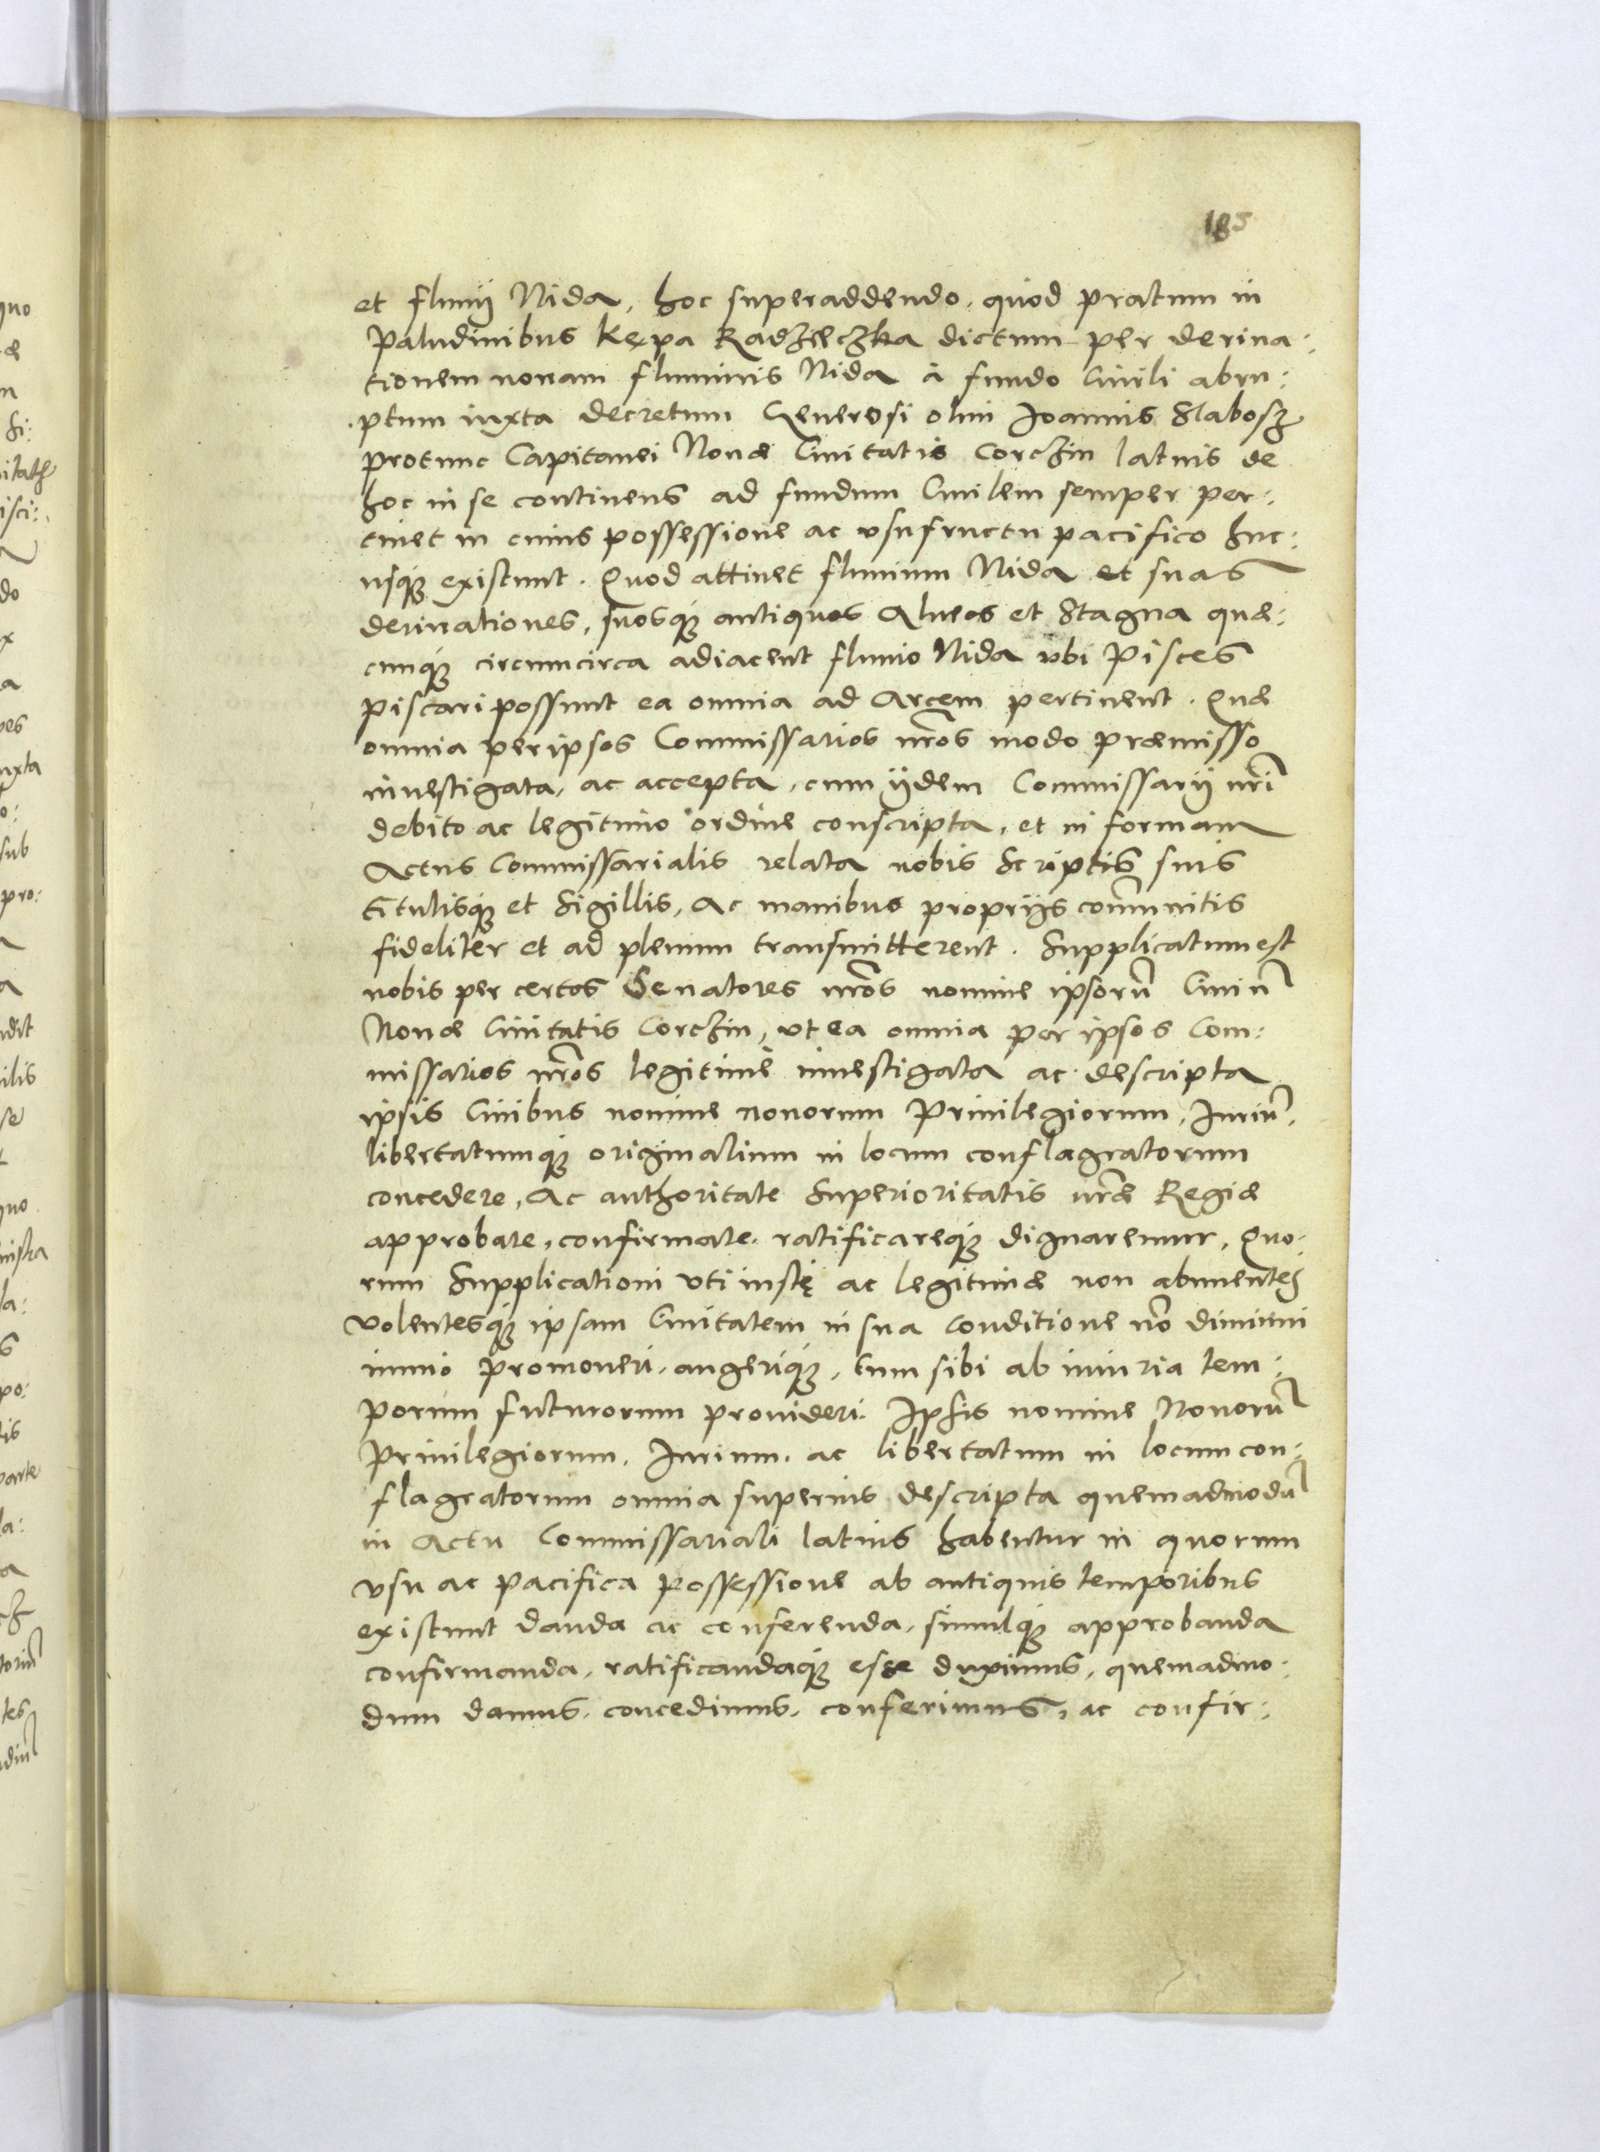 185
et fluuij Nida, hoc superaddendo, quod pratum in
Paludinibus Kępa Radzieczka dictum per deriua:
tionem nouam fluminis Nida à fundo Ciuili abru:
ptum iuxta decretum Generosi olim Joannis Slabosz
protunc Capitanei Nouæ Ciuitatis Corczin latius de
hoc in se continens ad fundum Ciuilem semper per:
tinet in cuius possessione ac vsufructu pacifico huc:
usq́ue existunt. Quod attinet fluuium Nida et suas
deriuationes, suosq́ue antiquos Alueos et Stagna quæ:
cunq́ue circumcirca adiacent fluuio Nida vbi Pisces
piscari possunt ea omnia ad Arcem pertinent. Quæ
omnia per ipsos Commissarios nr̃os modo præmisso
inuestigata, ac accepta, cum ijdem Commissarij nr̃i
debito ac legitimo ordine conscripta, et in formam
Actus Commissarialis relata nobis Scriptis suis
titulisq́ue et Sigillis, Ac manibus proprijs com̃unitis
fideliter et ad plenum transmitterent. Supplicatum est
nobis per certos Senatores nr̃os nomine ipsorũ Ciuiũ
Nouæ Ciuitatis Corczin, vt ea omnia per ipsos Com:
missarios nr̃os legitimè inuestigata ac descripta
ipsis Ciuibus nomine nouorum Priuilegiorum, Juriũ,
libertatumq́ue originalium in locum conflagratorum
concedere, Ac authoritate Superioritatis nr̃æ Regiæ
approbare, confirmare, ratificareq́ue dignaremur, Quo:
rum Supplicationi vti iustę ac legitimæ non abnuentes
volentesq́ue ipsam Ciuitatem in sua conditione nõ diminui
immò promoueri, augeriq́ue, tum sibi ab iniuria tem:
porum futurorum prouideri. Ipsis nomine Nouorũ
Priuilegiorum, Jurium, ac libertatum in locum con:
flagratorum omnia superius descripta quemadmodũ
in Actu Commissariali latius habentur in quorum
vsu ac pacifica possessione ab antiquis temporibus
existunt danda ac conferenda, simulq́ue approbanda
confirmanda, ratificandaq́ue esse duximus, quemadmo:
dum damus, concedimus, conferimus, ac confir: